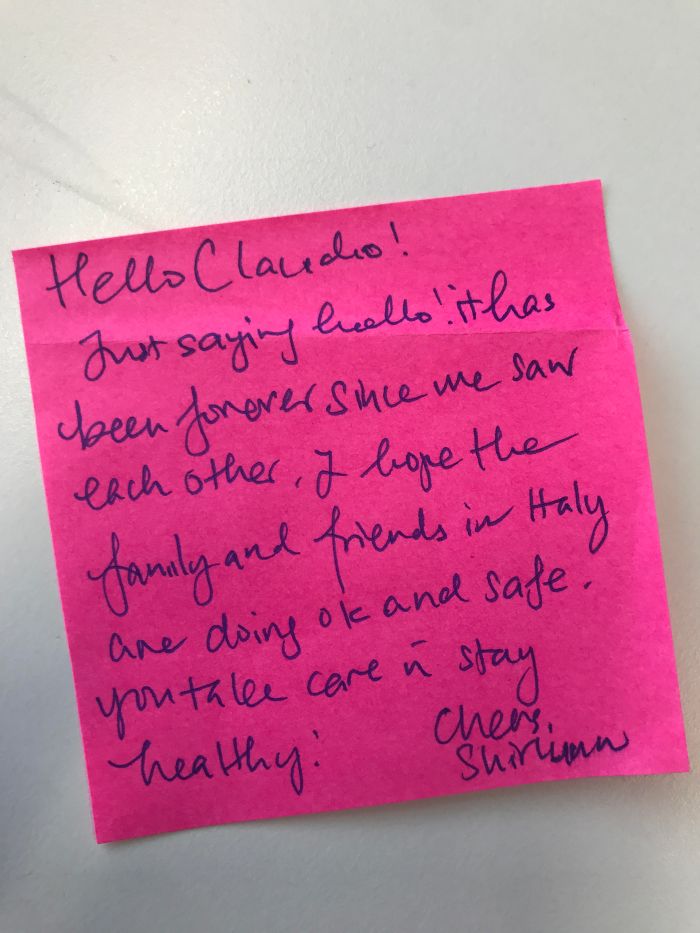 Hello Claudio!
Just saying hello! it has
been forever since we saw
each other. I hope the
family and friends in Italy
are doing ok and safe.
you take care n stay
healthy!
Cheers,